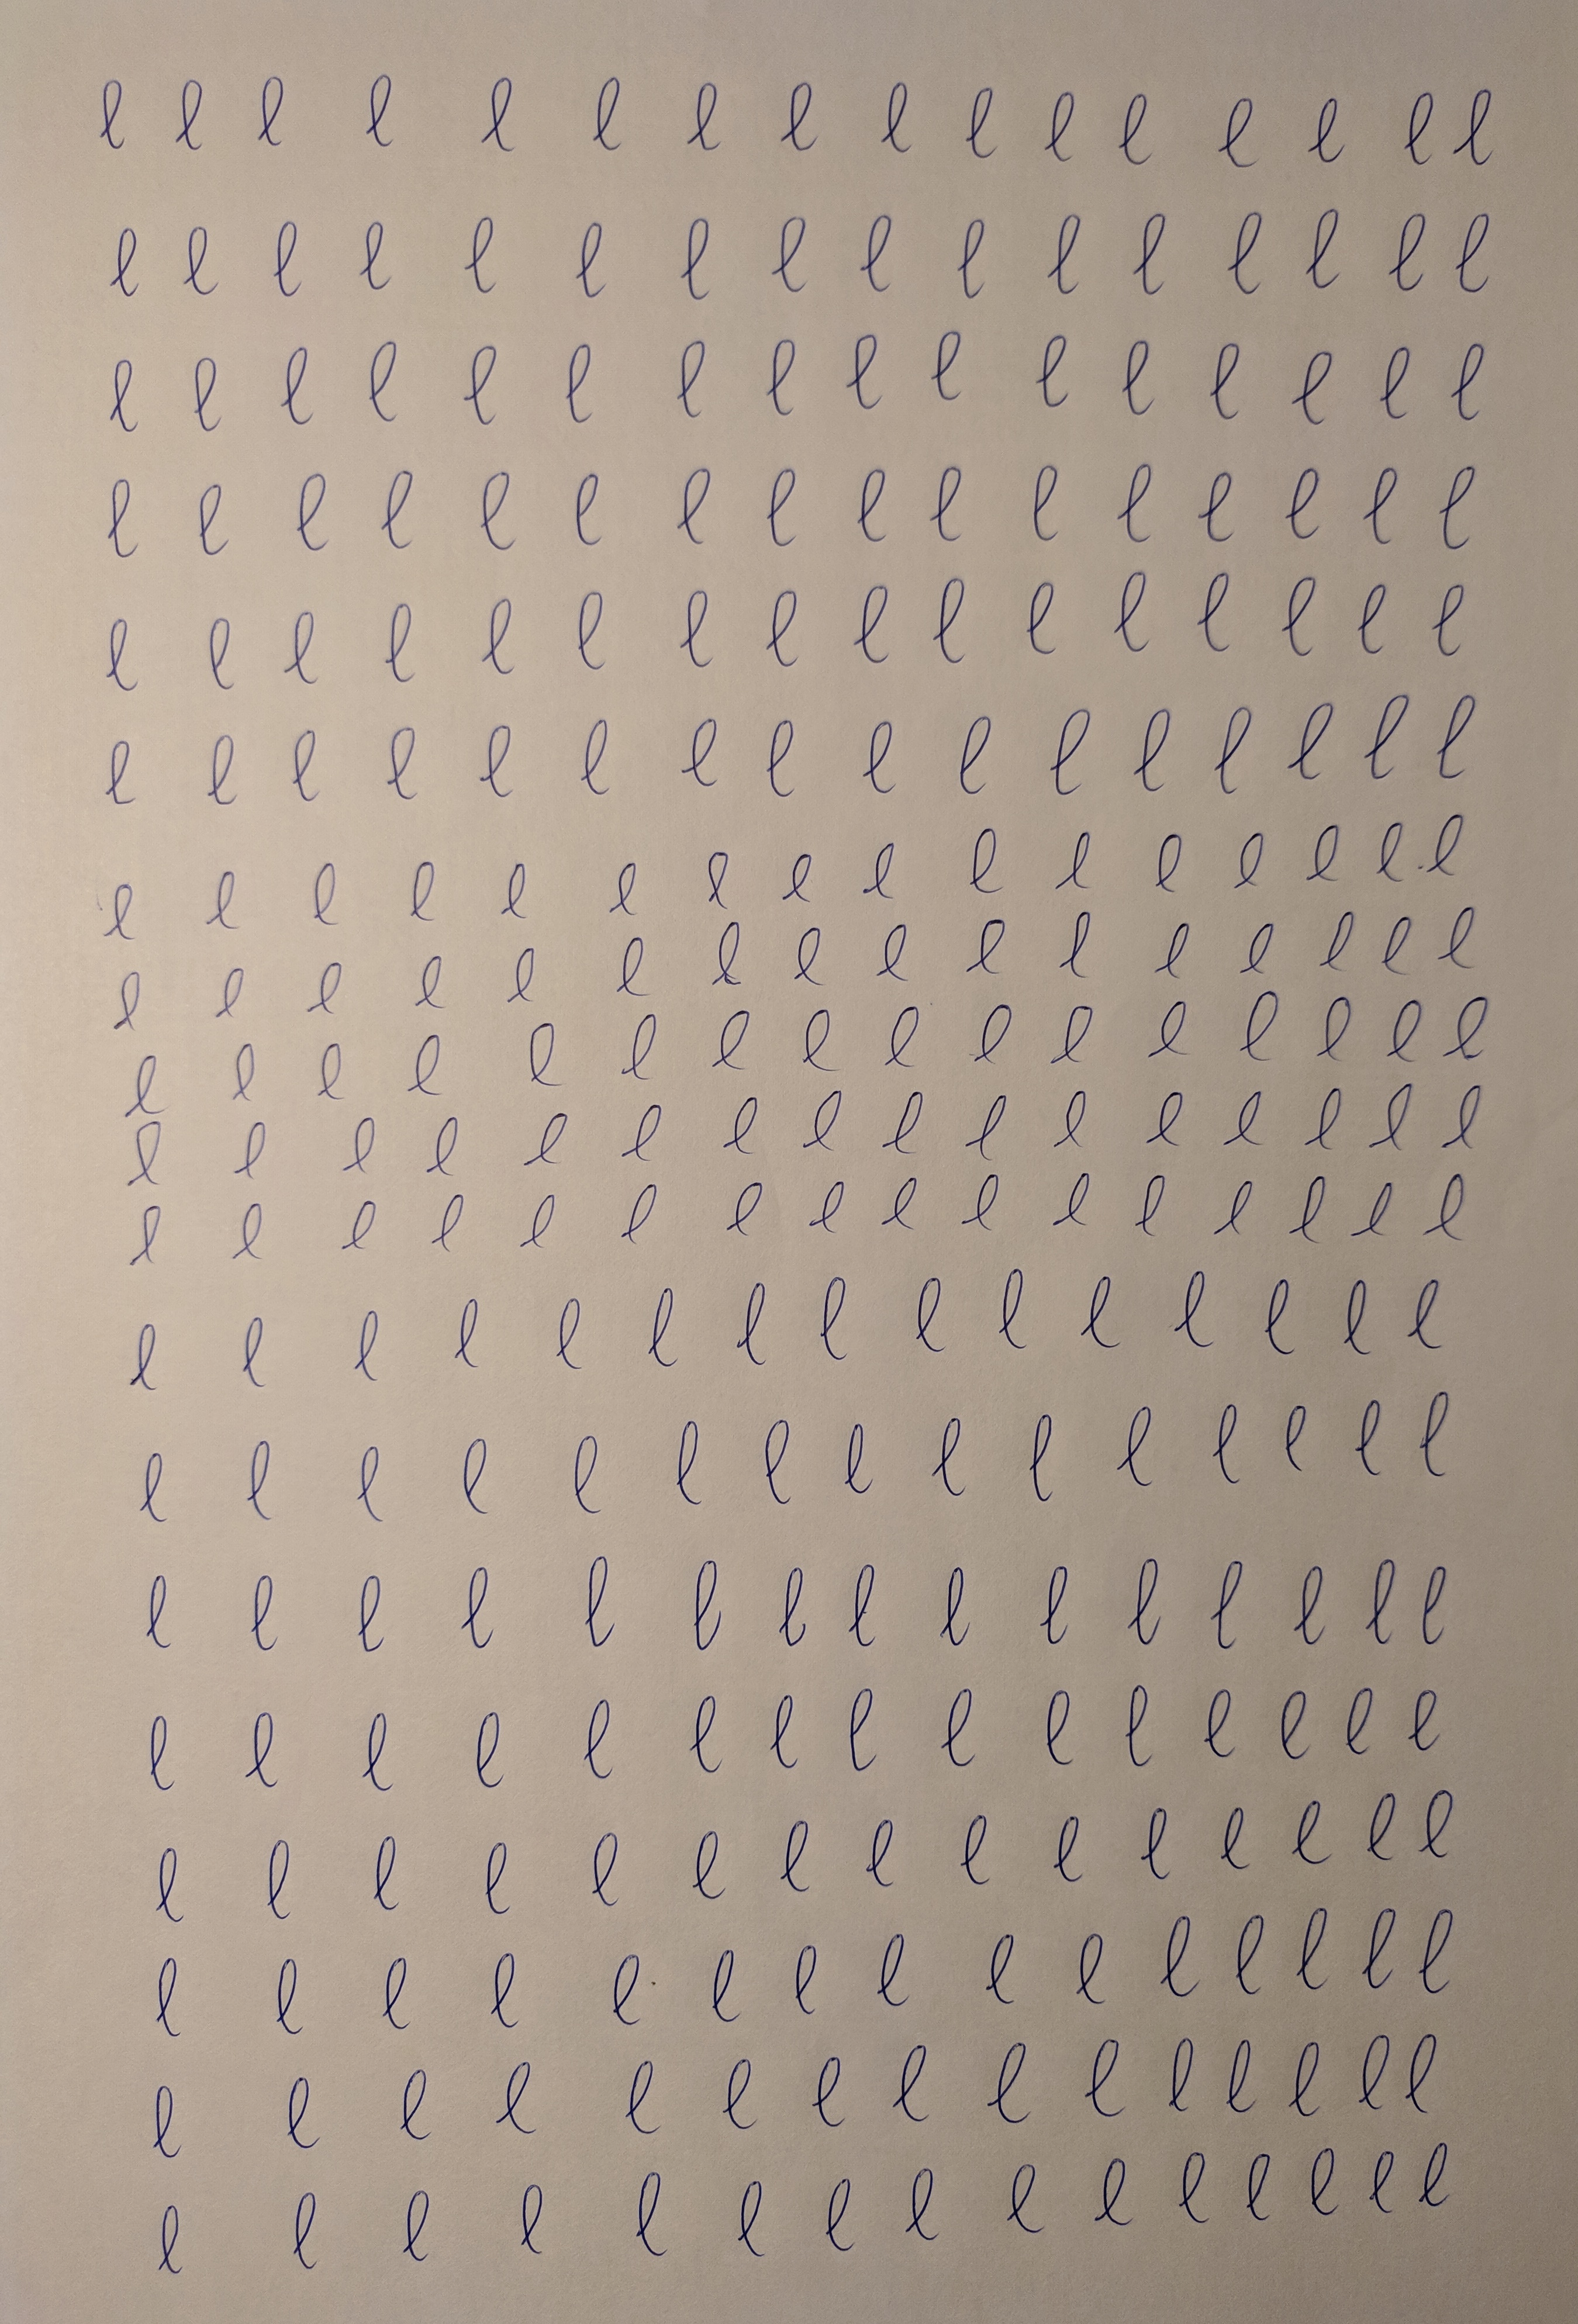 l l l l l l l l l l l l l l l l
l l l l l l l l l l l l l l l l
l l l l l l l l l l l l l l l l
l l l l l l l l l l l l l l l l
l l l l l l l l l l l l l l l l
l l l l l l l l l l l l l l l l
l l l l l l l l l l l l l l l l
l l l l l l l l l l l l l l l l
l l l l l l l l l l l l l l l l
l l l l l l l l l l l l l l l l
l l l l l l l l l l l l l l l l
l l l l l l l l l l l l l l l
l l l l l l l l l l l l l l l
l l l l l l l l l l l l l l l
l l l l l l l l l l l l l l l
l l l l l l l l l l l l l l l
l l l l l l l l l l l l l l l
l l l l l l l l l l l l l l l
l l l l l l l l l l l l l l l